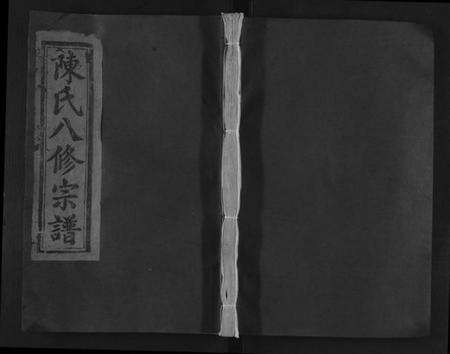 陳氏八修宗譜